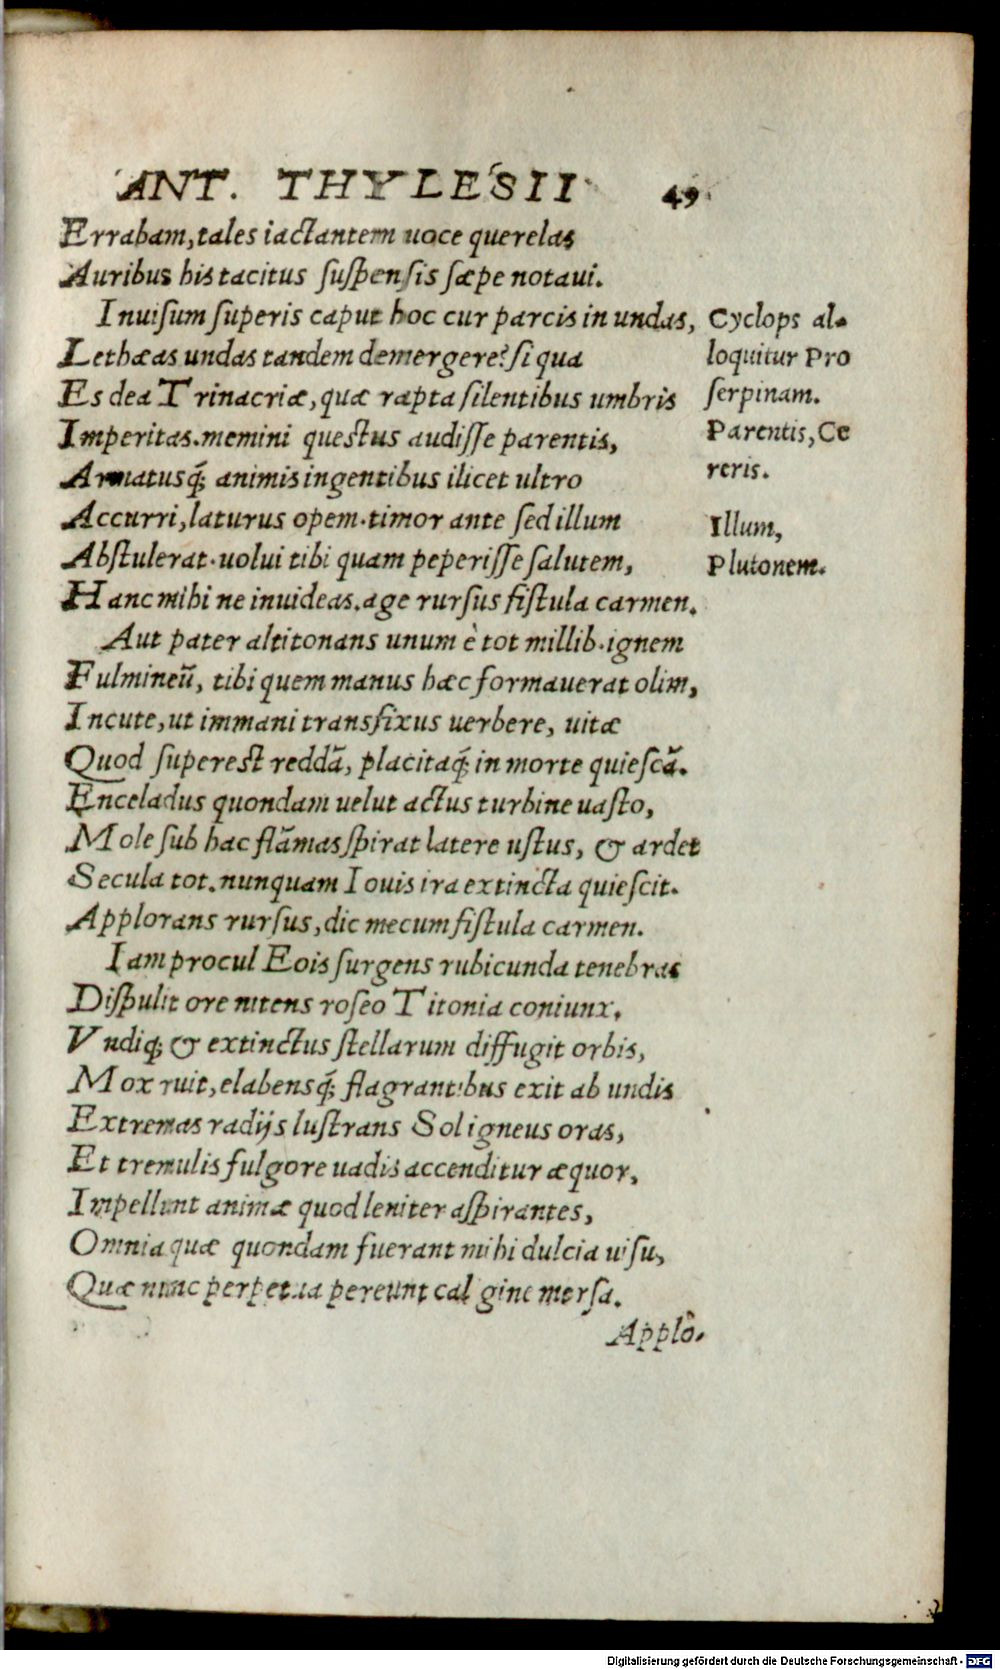 ANT. THYLESII 49
Errabam, tales iactantem uoce querelas
Auribus his tacitus suspensis sæpe notaui.
Inuisum superis caput hoc cur parcis in undas,
Lethæas undas tandem demergere? si qua
Es dea Trinacriæ, quæ rapta silentibus umbris
Imperitas. memini questus audisse parentis,
Armatusq́; animis ingentibus ilicet ultro
Accurri, laturus opem. timor ante sed illum
Abstulerat. uolui tibi quam peperisse salutem,
Hanc mihi ne inuideas. age rursus fistula carmen.
Aut pater altitonans unum è tot millib. ignem
Fulmineũ, tibi quem manus hæc formauerat olim,
Incute, ut immani transfixus uerbere, uitæ
Quod superest reddã, placitaq́; in morte quiescã.
Enceladus quondam uelut actus turbine uasto,
Mole sub hac flãmas spirat latere ustus, & ardet
Secula tot. nunquam Iouis ira extincta quiescit.
Applorans rursus, dic mecum fistula carmen.
Iam procul Eois surgens rubicunda tenebras
Dispulit ore nitens roseo Titonia coniunx.
Vndiq; & extinctus stellarum diffugit orbis,
Mox ruit, elabensq́; flagrantibus exit ab undis
Extremas radijs lustrans Sol igneus oras,
Et tremulis fulgore uadis accenditur æquor,
Impellunt animæ quod leniter aspirantes,
Omnia quæ quondam fuerant mihi dulcia uisu,
Quæ nunc perpetua pereunt caligine mersa.
Applo.
Cyclops al-
loquitur Pro
serpinam.
Parentis, Ce
reris.
Illum,
Plutonem.
Digitalisierung gefördert durch die Deutsche Forschungsgemeinschaft - DFG